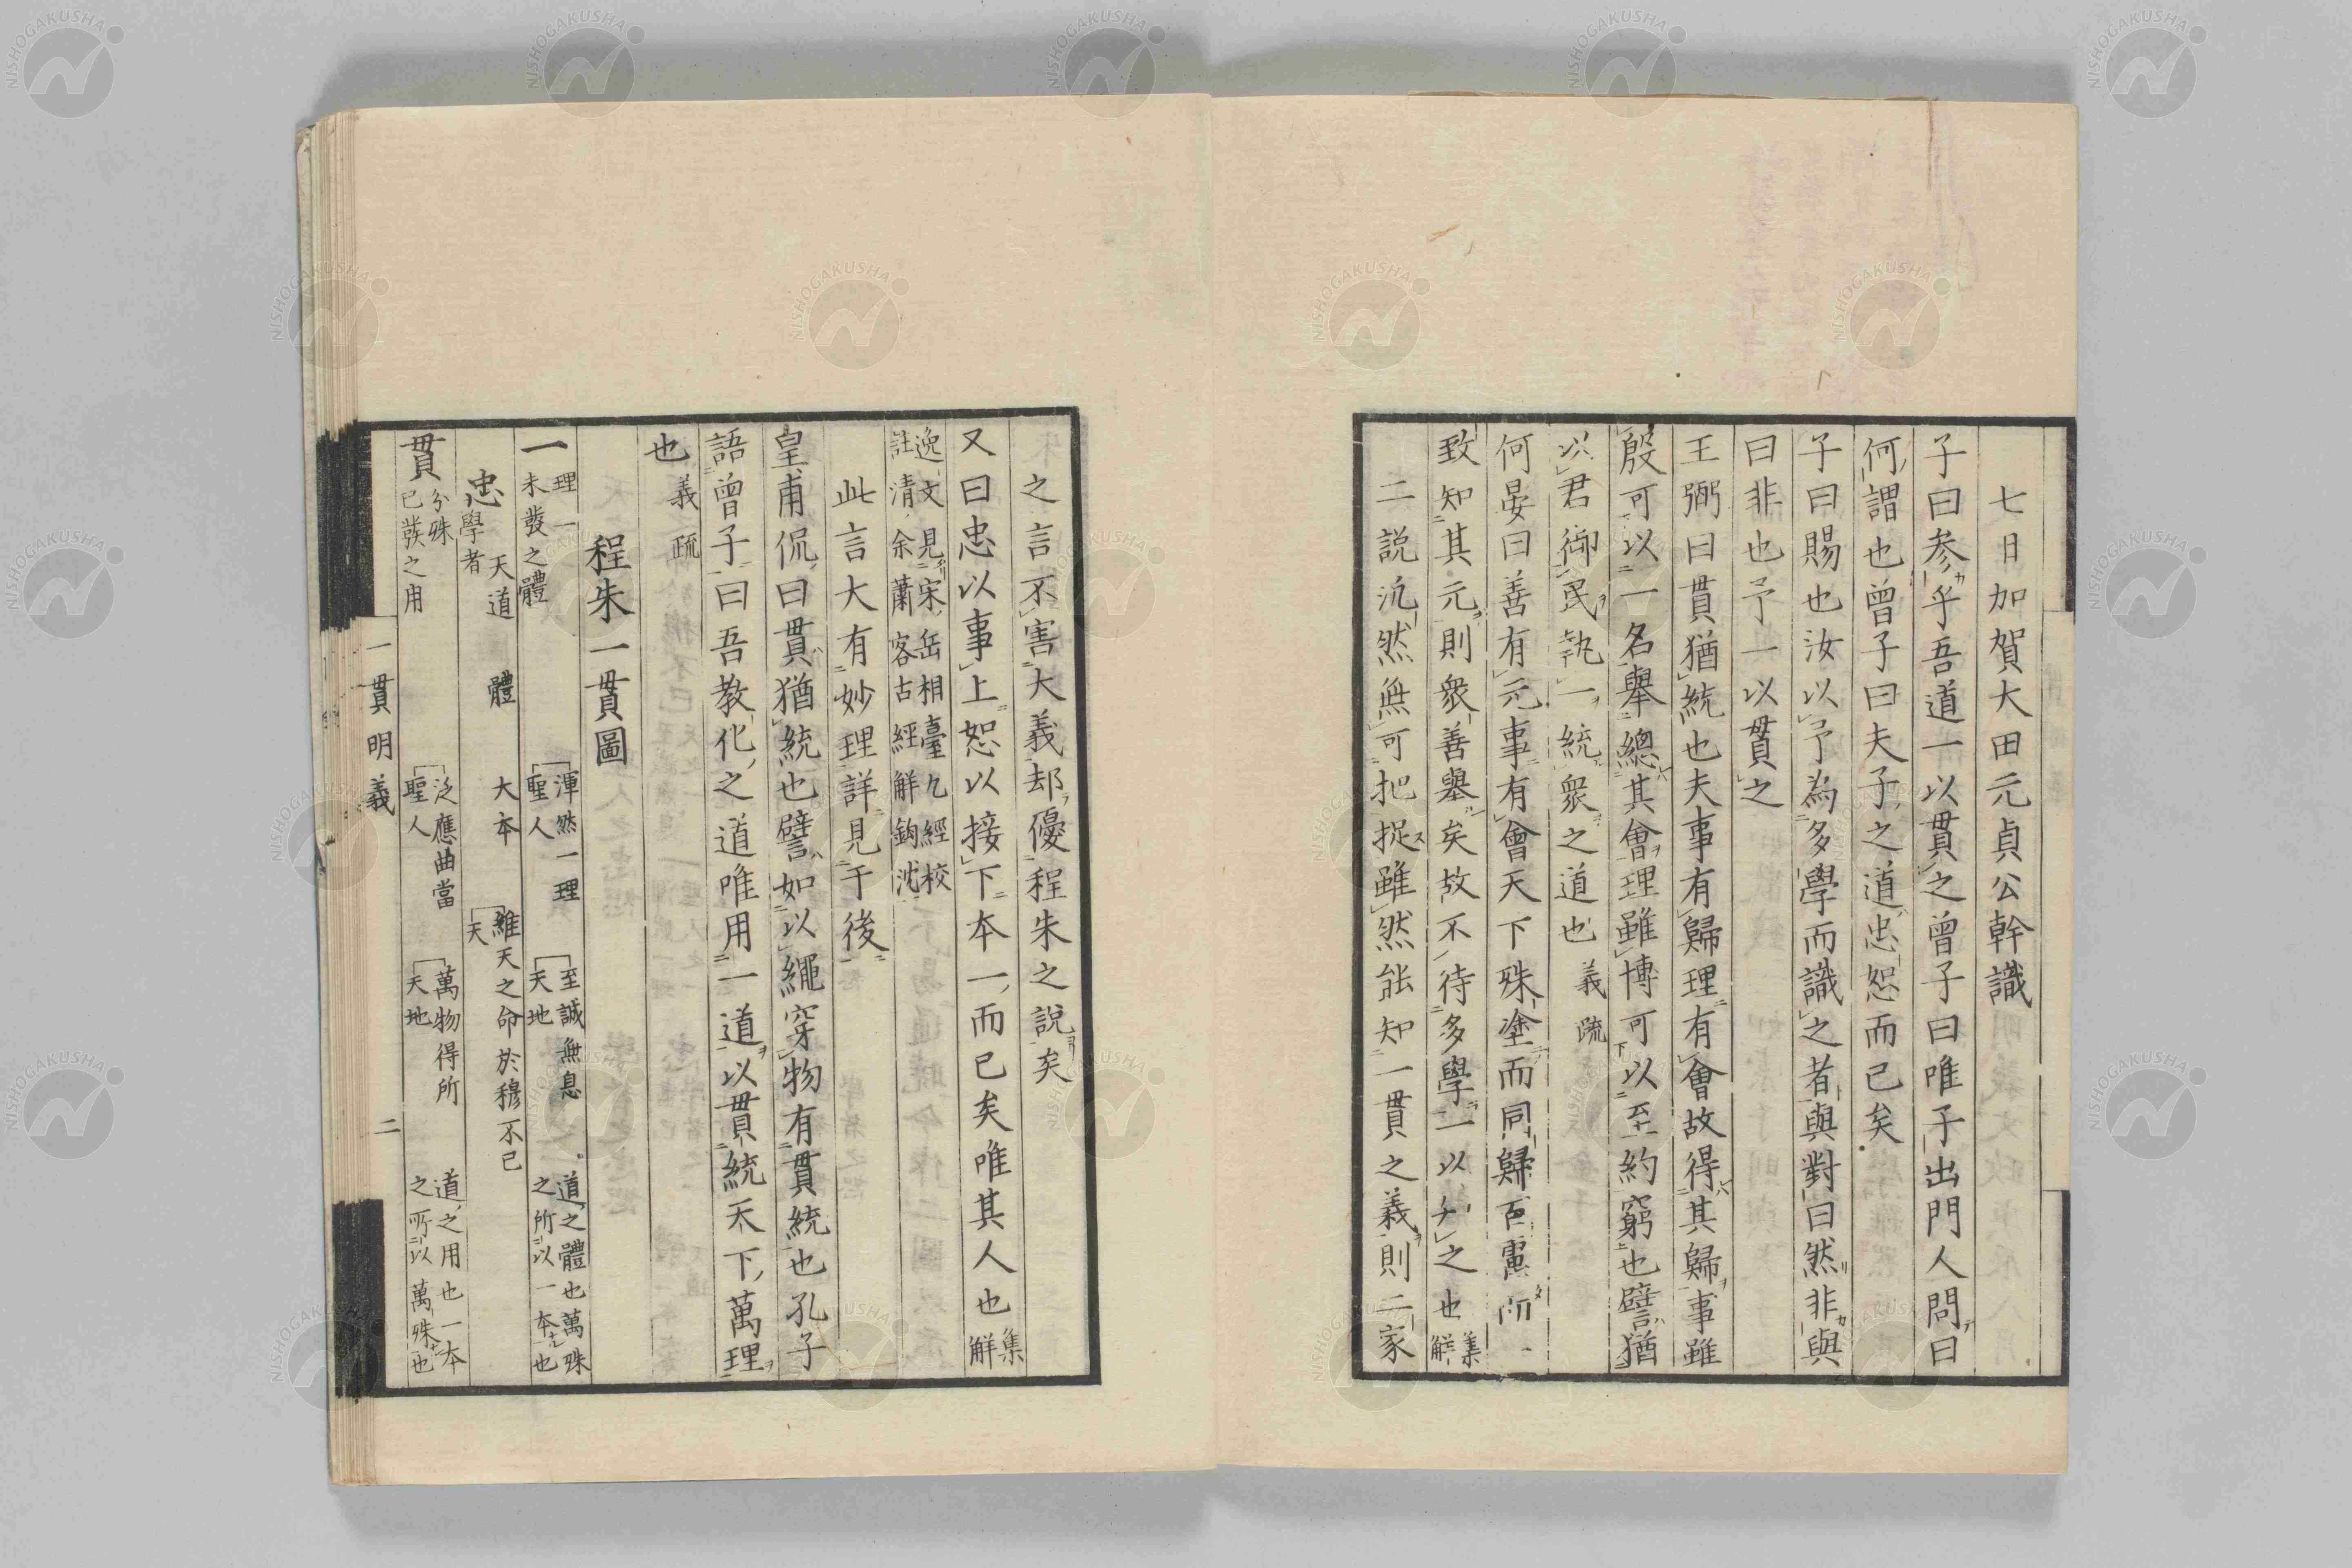 七日加賀大田元貞公幹識
子曰参乎吾道一以貫之曾子曰唯子出門人問曰
何謂也曾子曰夫子之道忠恕而已矣
子曰賜也汝以予為多學而識之者與對曰然非與
曰非也予一以貫之
王弼曰貫猶統也夫事有歸理有會故得其歸事雖
殷可以一名舉總其會理雖博可以至約窮也譬猶
以君御民執一統衆之道也 義疏
何晏曰善有元事有會天下殊塗而同歸百慮而一
致知其元則衆善舉矣故不待多學一以知之也 集解
二説汎然無可把捉雖然能知一貫之義則二家
之言不害大義却優程朱之説矣
又曰忠以事上恕以接下本一而已矣唯其人也 集解
逸文見宋岳相臺九經校
註清余蕭客古經解鉤沈
此言大有妙理詳見于後
皇甫侃曰貫猶統也譬如以繩穿物有貫統也孔子
語曾子曰吾教化之道唯用一道以貫統天下萬理
也 義疏
程朱一貫圖
一 理一 未發之體 渾然一理 聖人 至誠無息 天地 道之體也萬殊之所以一本也
忠 學者 天道 體 大本 維天之命於穆不已 天
貫 分殊 已發之用 泛應曲當 聖人 萬物得所 天地 道之用也一本之所以萬殊也
一貫明義 二
NISHOGAKUSHA